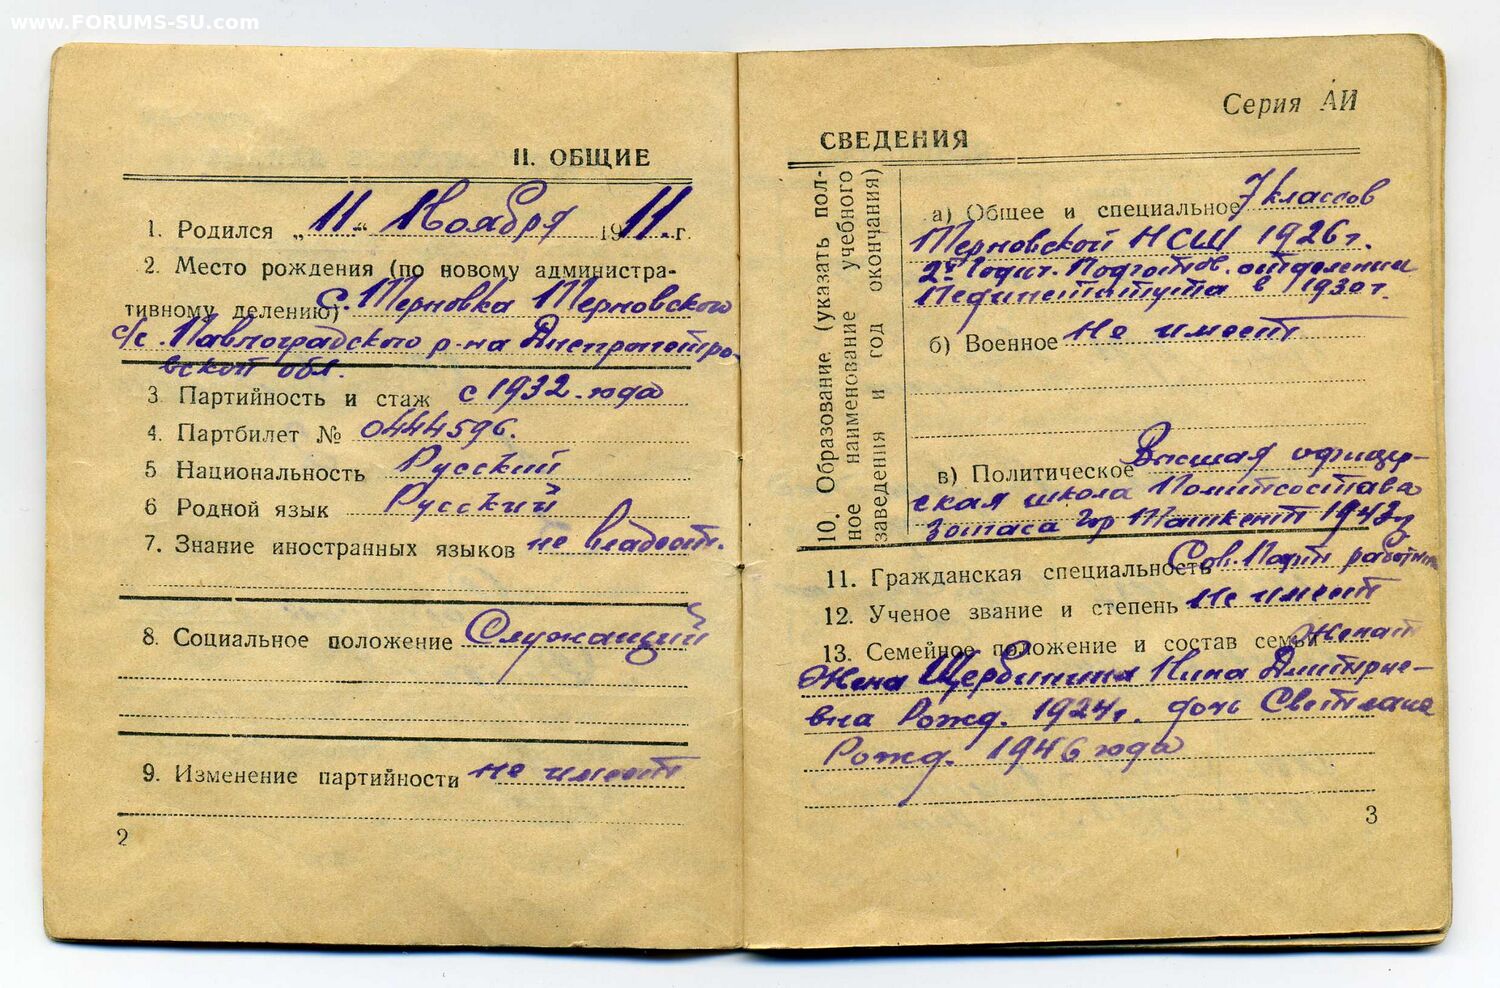 www.FORUMS-SU.com
II. ОБЩИЕ
1. Родился „11“ Ноября 1911 г.
2. Место рождения (по новому администра-
тивному делению) с. Терновка Терновского
с/с. Павлоградского р-на Днепропетро-
вской обл.
3. Партийность и стаж с 1932 года
4. Партбилет № 0444596.
5 Национальность Русский
6 Родной язык Русский
7. Знание иностранных языков не владеет.
8. Социальное положение Служащий
9. Изменение партийности не имеет
2
Серия АИ
СВЕДЕНИЯ
10. Образование (указать пол-
ное наименование учебного
заведения и год окончания)
а) Общее и специальное 7 классов
Терновской НСШ 1926 г.
2х годич. Подготов. отделении
Пединститута в 1930 г.
б) Военное Не имеет
в) Политическое Высшая офицер-
ская школа Политсостава
Запаса гор Ташкент 1943 г
11. Гражданская специальность Сов. Парт работник
12. Ученое звание и степень Не имеет
13. Семейное положение и состав семьи Женат
Жена Щербинина Нина Дмитрие-
вна Рожд. 1924 г. дочь Светлана
Рожд. 1946 года
3